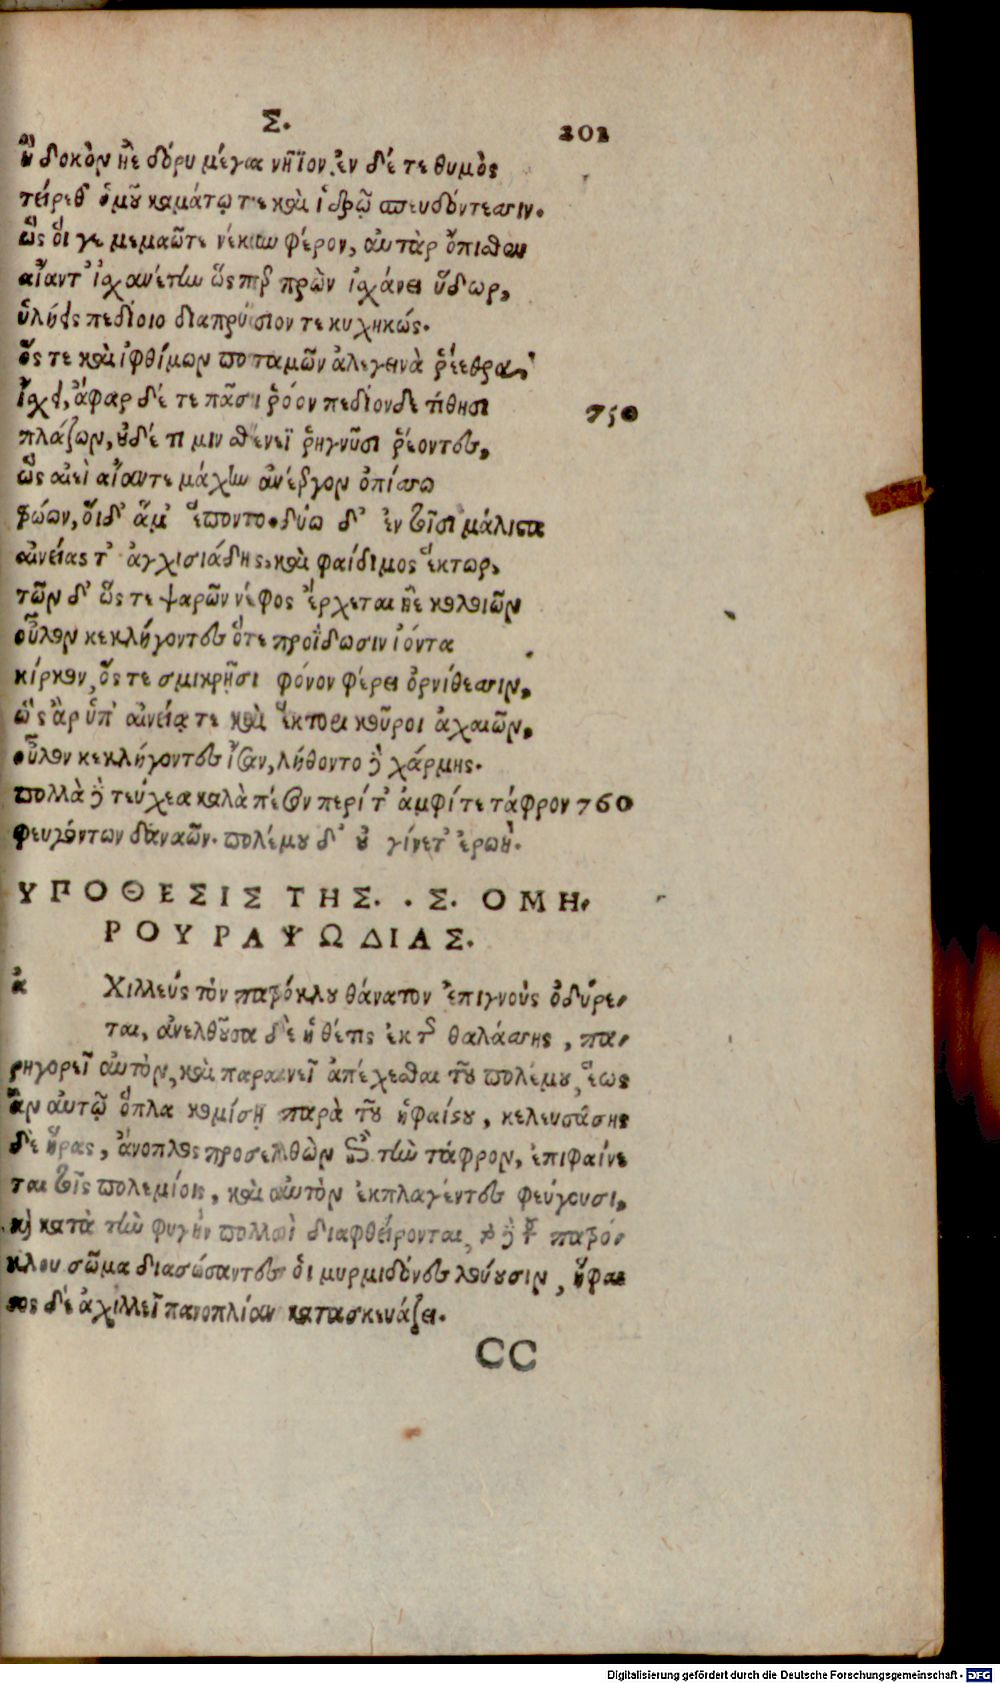 Σ.
202
ἢ δοκὸν ἠὲ δόρυ μέγα νήϊον, ἐν δέ τε θυμὸς
τείρεθ' ὁμοῦ καμάτῳ τε καὶ ἱδρῷ σπευδόντεσσιν.
ὣς οἵ γε μεμαῶτε νέκυν φέρον, αὐτὰρ ὄπισθεν
αἴαντ' ἰσχανέτην ὥσπερ πρὼν ἰσχάνει ὕδωρ,
ὑλήεις πεδίοιο διαπρύσιον τεκυχηκώς.
ὅς τε καὶ ἰφθίμων ποταμῶν ἀλεγεινὰ ῥέεθρα,
ἴσχει, ἄφαρ δέ τε πᾶσι ῥόον πεδίονδε τίθησι
750
πλάζων, οὐδέ τι μιν σθένεϊ ῥηγνῦσι ῥέοντες,
ὣς αἰεὶ αἴαντε μάχην ἀνέεργον ὀπίσσω
τρώων, οἵδ' ἅμ' ἕποντο. δύω δ' ἐν τοῖσι μάλιστα
αἰνείας τ' ἀγχισιάδης, καὶ φαίδιμος ἕκτωρ,
τῶν δ' ὥς τε ψαρῶν νέφος ἔρχεται ἠὲ κολοιῶν
οὖλον κεκλήγοντες ὅτε προΐδωσιν ἰόντα
κίρκον, ὅς τε σμικρῇσι φόνον φέρει ὀρνίθεσσιν,
ὣς ἂρ ὑπ' αἰνείᾳ τε καὶ ἕκτορι κοῦροι ἀχαιῶν,
οὖλον κεκλήγοντες ἴσαν, λήθοντο δὲ χάρμης.
πολλὰ δὲ τεύχεα καλὰ πέσον περί τ' ἀμφί τε τάφρον 760
φευγόντων δαναῶν. πολέμου δ' οὐ γίνετ' ἐρωή.
ΥΠΟΘΕΣΙΣ ΤΗΣ. . Σ. ΟΜΗ,
ΡΟΥ ΡΑΨΩΔΙΑΣ.
ἀ Χιλλεὺς τὸν πατρόκλου θάνατον ἐπιγνοὺς ὀδύρε,
ται, ἀνελθοῦσα δὲ ἡ θέτις ἐκ τῆς θαλάσσης, πα,
ρηγορεῖ αὐτὸν, καὶ παραινεῖ ἀπέχεσθαι τοῦ πολέμου, ἕως
ἂν αὐτῷ ὅπλα κομίσῃ παρὰ τοῦ ἡφαίστου, κελευσάσης
δὲ ἥρας, ἄνοπλος προσελθὼν ἐπὶ τὴν τάφρον, ἐπιφαίνε
ται τοῖς πολεμίοις, καὶ αὐτὸν ἐκπλαγέντες φεύγουσι,
καὶ κατὰ τὴν φυγὴν πολλοὶ διαφθείρονται, τὸ δὲ τοῦ πατρό,
κλου σῶμα διασώσαντες οἱ μυρμιδόνες λούουσιν, ἥφαι
στος δὲ ἀχιλλεῖ πανοπλίαν κατασκευάζει.
CC
Digitalisierung gefördert durch die Deutsche Forschungsgemeinschaft - DFG